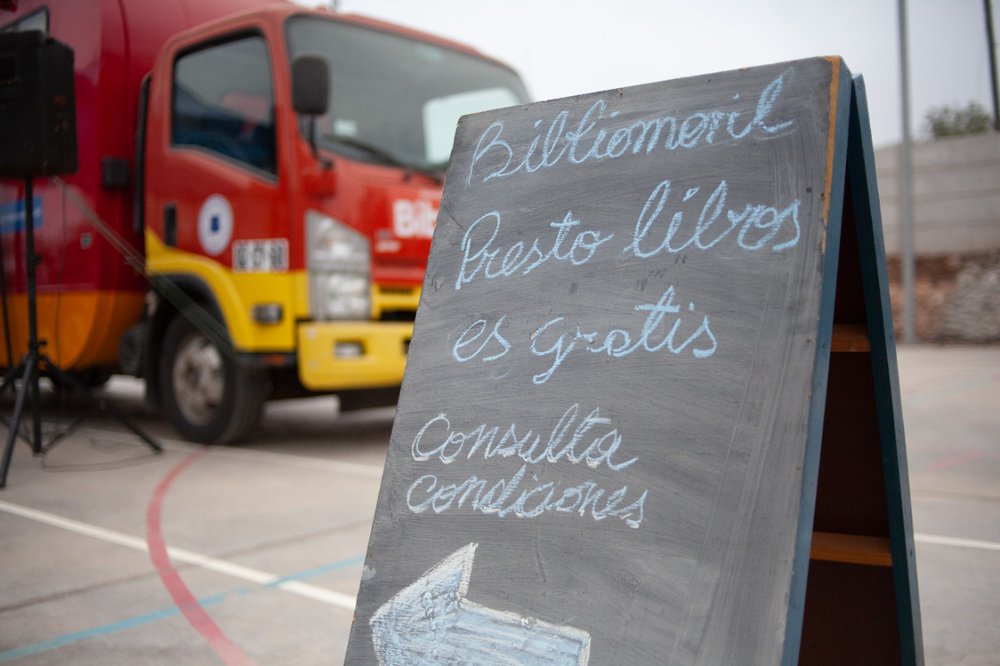 Bibliomovil
Presto libros
es gratis
Consulta
Condiciones
Bib